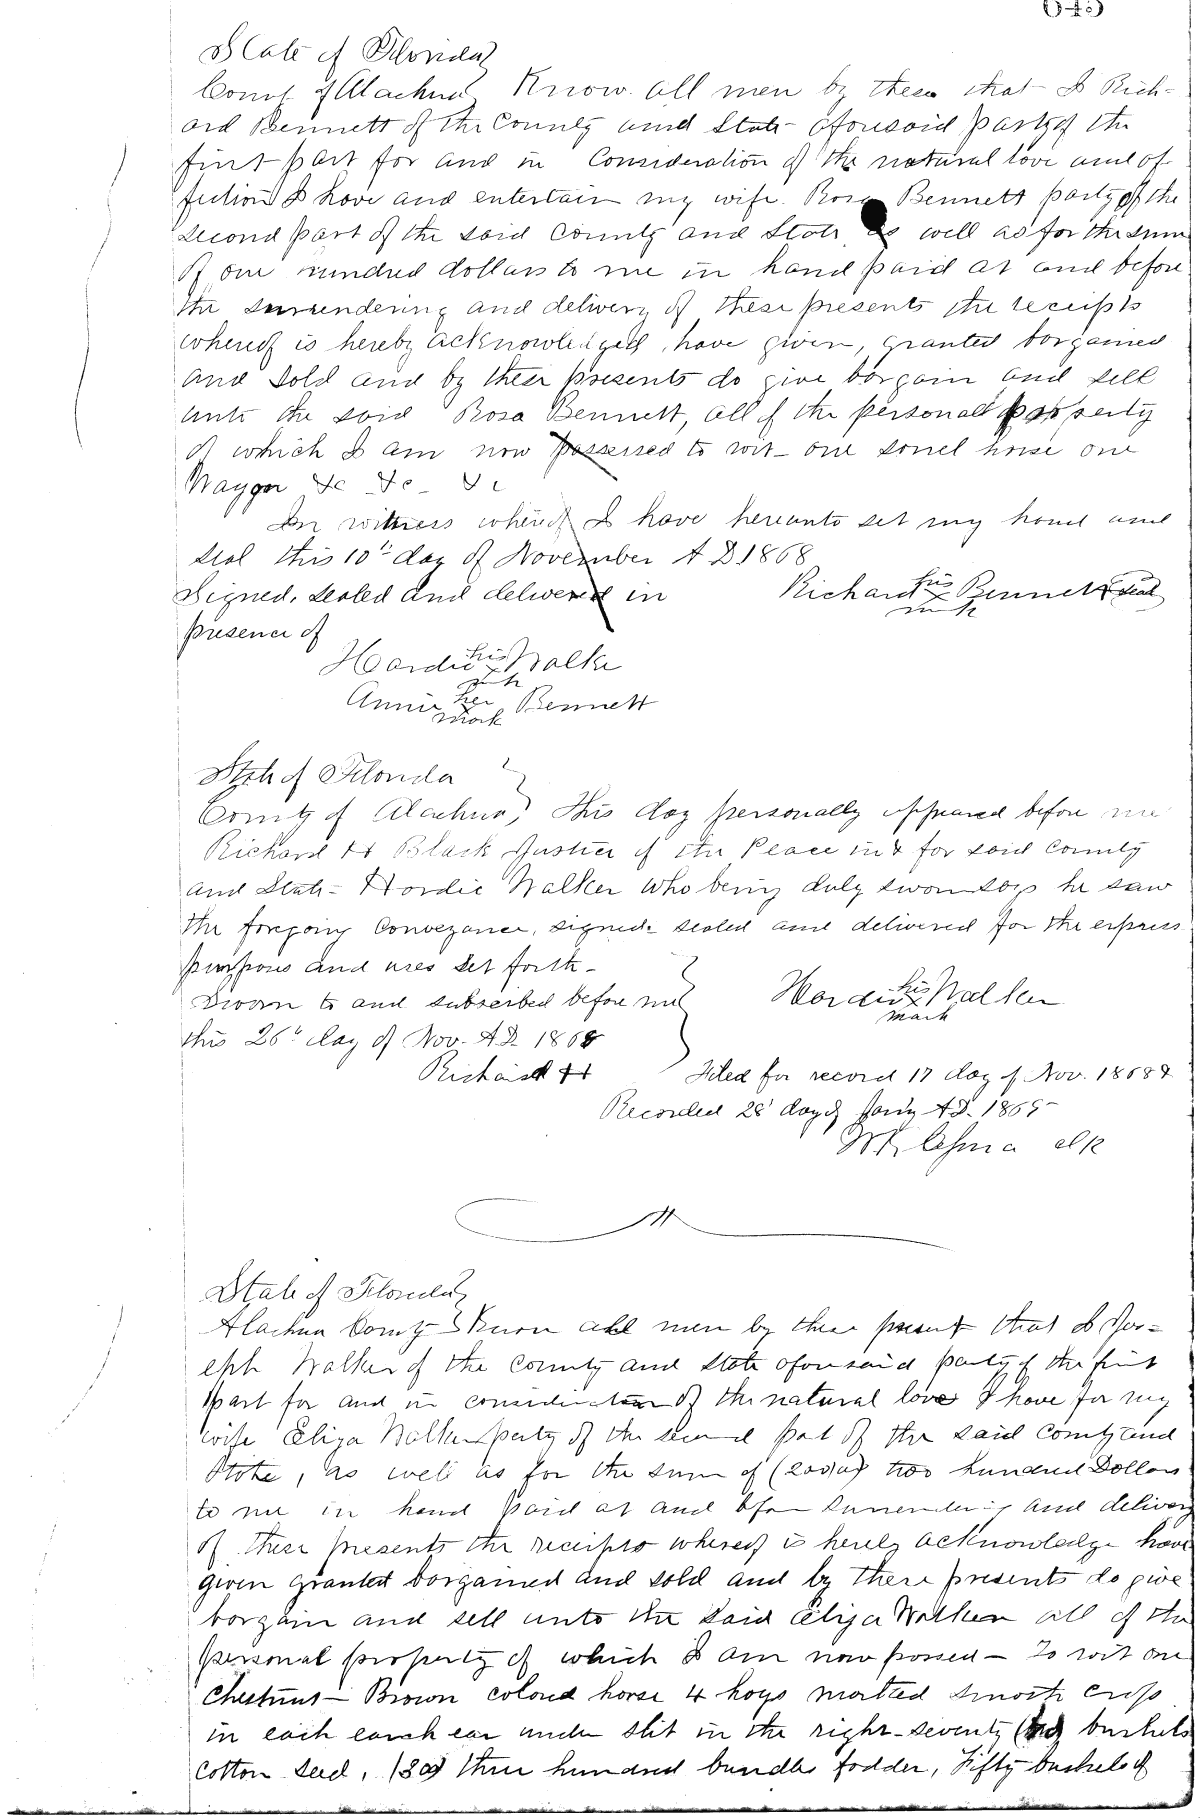 State of Florida
County of Alachua Know all men by these that I Rich-
ard Bennett of the County and State aforesaid party of the
first part for and in Consideration of the natural love and af
fection I have and entertain my wife Rosa Bennett party of the
second part of the said County and State as well as for the sum
of one hundred dollars to me in hand paid at and before
the surrendering and delivery of these presents the receipts
whereof is hereby acknowledged, have given, granted bargained
and sold and by these presents do give bargain and sell
unto the said Rosa Bennett, all of the personal property
of which I am now possessed to wit - one sorrel horse one
Waygon &c &c - &c
In witness whereof I have hereunto set my hand and
seal this 10th day of November A D 1868
Signed, sealed and delivered in Richard his x mark Bennett seal
presence of
Hardie his x mark Walke
Annie her mark Bennett
State of Florida
County of Alachua, This day personally appeared before me
Richard H Black Justice of the Peace in & for said County
and State - Hardie Walker who being duly sworn says he saw
the foregoing Conveyance, signed - sealed and delivered for the express
purposes and uses set forth -
Sworn to and subscribed before me Hardie his x mark Walker
this 26th day of Nov. A.D. 1868
Richard H Filed for record 17 day of Nov. 1868
Recorded 28 day of Jany A.D. 1869
clk
State of Florida
Alachua County Know all men by these present that I Jos-
eph Walker of the County and State aforesaid party of the first
part for and in consideration of the natural love I have for my
wife Eliza Walker party of the second part of the said County and
State, as well as for the sum of (200) two hundred Dollars
to me in hand paid at and before surrendering and delivery
of these presents the receipts whereof is hereby acknowledge have
given granted bargained and sold and by these presents do give
bargain and sell unto the said Eliza Walker all of the
personal property of which I am now possed - To wit one
Chestnut - Brown colored horse 4 hogs marked smooth crop
in each earch ear under slit in the right - seventy bushels
Cotton seed, (300) three hundred bundles fodder, Fifty bushels of